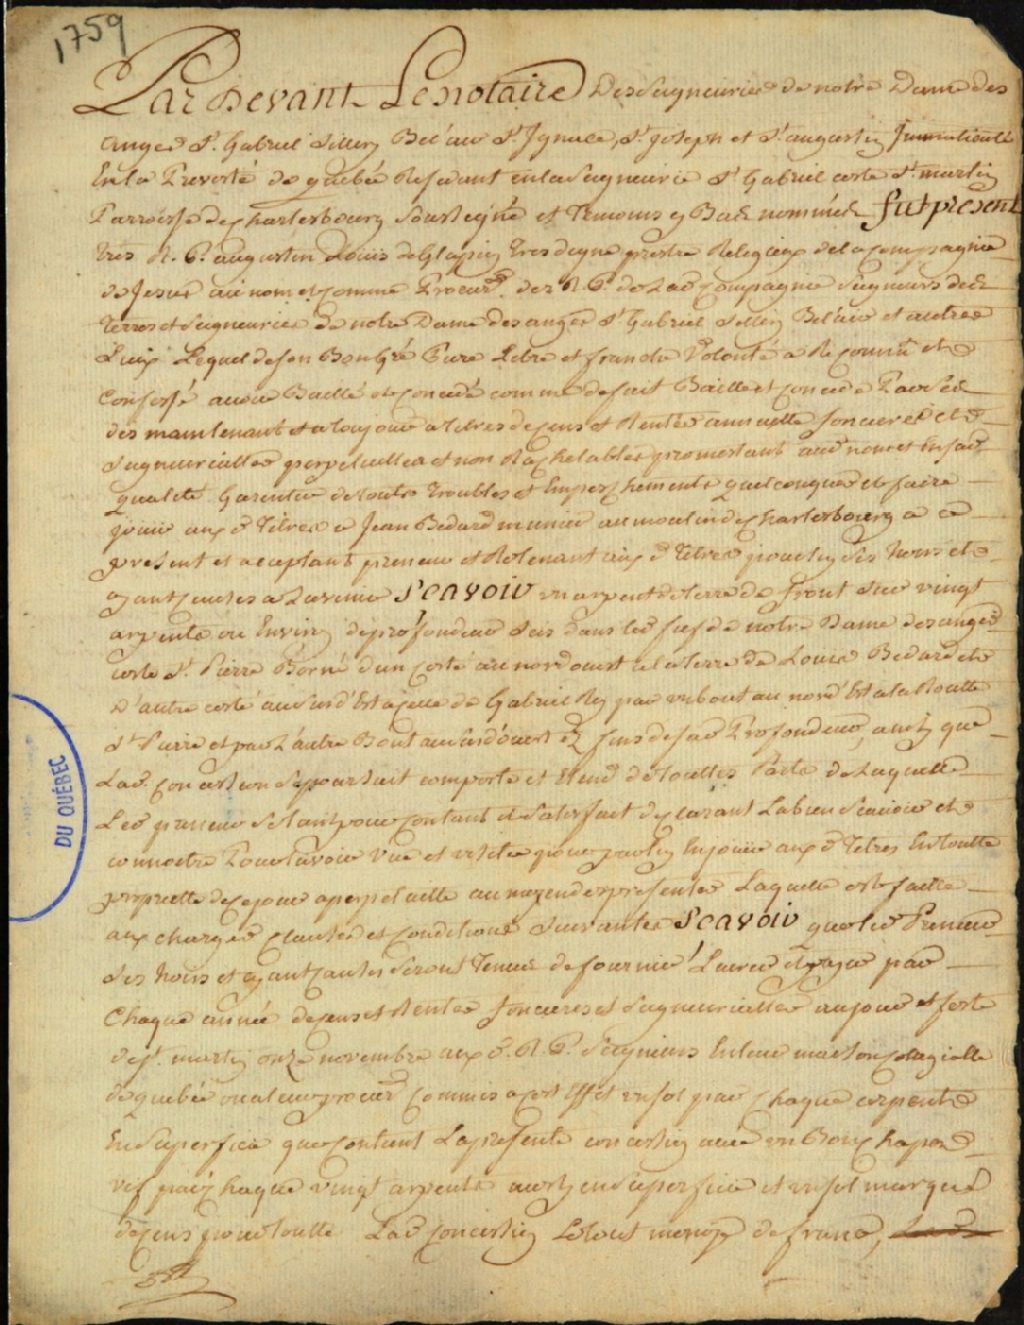 1759
Par Devant Le notaire Des Seigneuries de notre Dame des
anges St. Gabriel Sillery Bel'air St Ignace, St. Joseph et St. augustin Immatriculé
En la Prevoté de quebec Residant en la Seigneurie St Gabriel coste St. martin
Parroisse de charlesbourg Soussigné et Temoins cy Bas nommés fut present
tres R. P. augustin Louis de Glapion tres digne prestre Religieux de la Compagnie
de Jesus au nom et comme Procur. des R. P. de La de Compagnie Seigneurs des
terres et Seigneuries de notre Dame des anges St Gabriel Sillery Bel'air et autres
Lieux Lequel de son Bon gré Pure Libre et franche Volonté a Reconnu et
Confessé avoir Baillé et Concedé comme de fait Baille et Concede Par ces
des maintenant et a toujours a titres de cens et Rentes annuelle foncieres et
Seigneurialles perpetuelles et non Rachetables promettant aud nom et En sad
qualité Garentir de touts troubles et Empeschements quelconques et faire
jouir aux d titres a Jean Bedard munier au moulin de charlesbourg a ce
present et acceptant preneur et Retenant aux d titres pour luy ses hoirs et
ayant causes a L'avenir Scavoir un arpent de terre de front Sur vingt
arpents ou Environ de profondeur Scis dans le fief de notre Dame des anges
coste St. Pierre Borné d'un costé au nord ouest a la terre de Louis Bedard et
d'autre costé au Sud'Est a celle de Gabriel Roy par un bout au nord'Est a la Routte
St Pierre et par L'autre Bout au Sud'ouest Ez fins de sad Profondeur, ainsy que
Lad. Concession Se poursuit comporte et Etend de touttes Parts de Laquelle
Led preneur S'est tenu pour Contant et Satisfait declarant La bien Scavoir et
connoitre Pour L'avoir Vue et visitée pour par luy En jouir aux d titres En toutte
proprieté de ce jour a perpetuitté au moyen des presentes Laquelle est faitte
aux charges clauses et conditions Suivantes Scavoir que led Preneur
Ses hoirs et ayant causes Seront Tenus de fournir Livrer et payer par
Chaque année de cens et Rentes foncieres et Seigneurialles au jour et feste
de St. martin onze novembre aux d. R. P. Seigneurs En leur maison
de quebec ou a leur procur Commis a cet Effet un sol par chaque arpents
En Superficie que Contient La presente concession avec un Bon chapon
vif par chaque vingt arpents aussy en Superficie et un sol marqué
de cens pour toutte Lad Concession Le tout monoye de france,
DU QUÉBEC